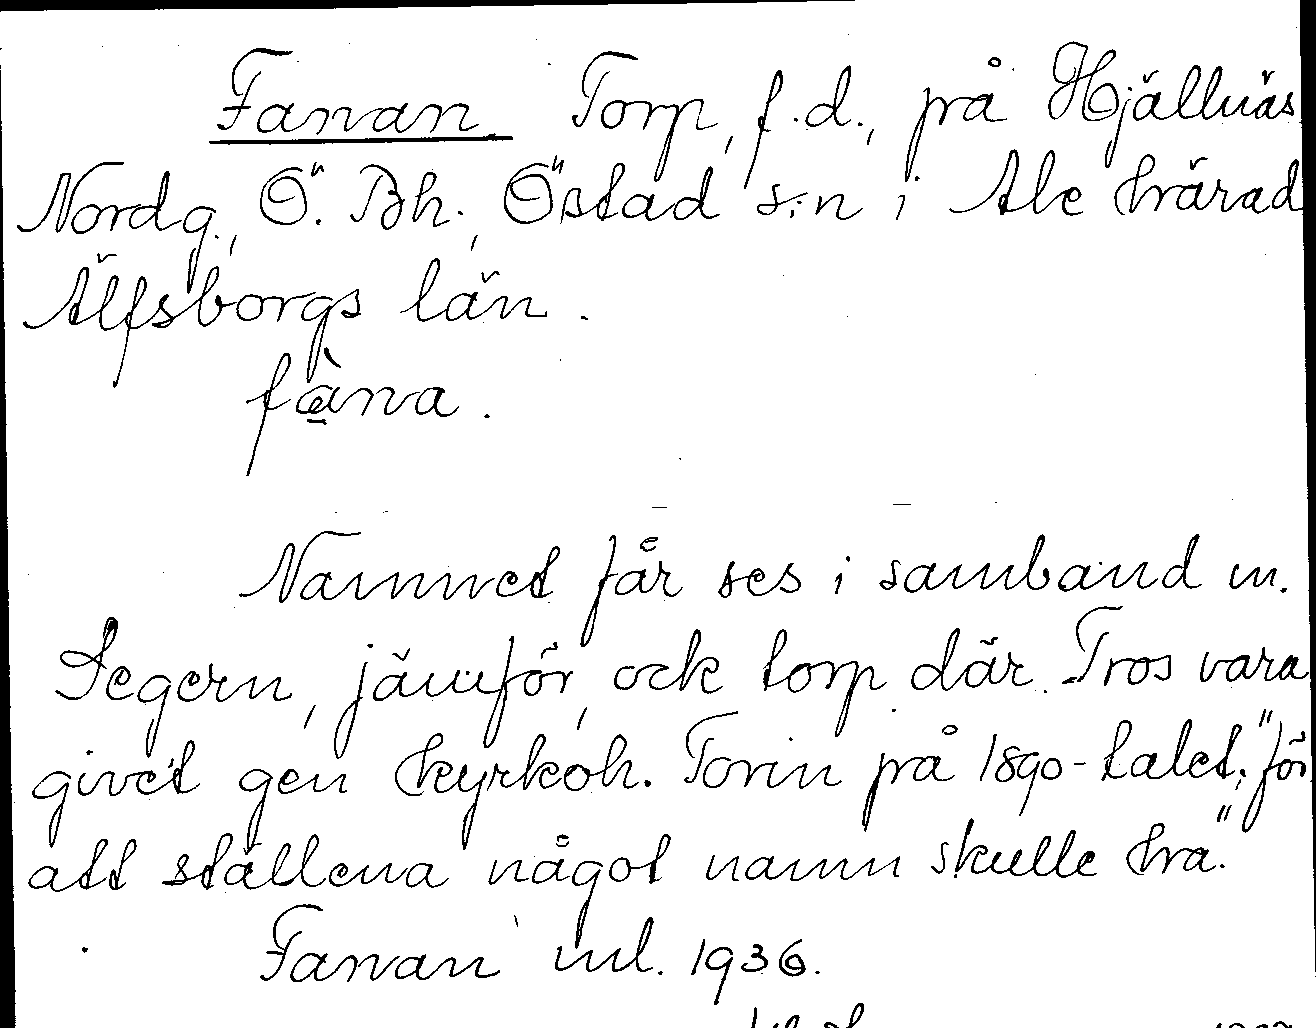 Fanan. Torp, f.d., på Hjällnäs
Nordg., Ö. Bh., Östad s:n i Ale härad
Älfsborgs län.
fàna.
Namnet får ses i samband m.
Segern, jämför, ock torp där. Tros vara
givet gen kyrkoh. Torin på 1890-talet, "för
att ställena något namn skulle ha."
Fanan ml. 1936.